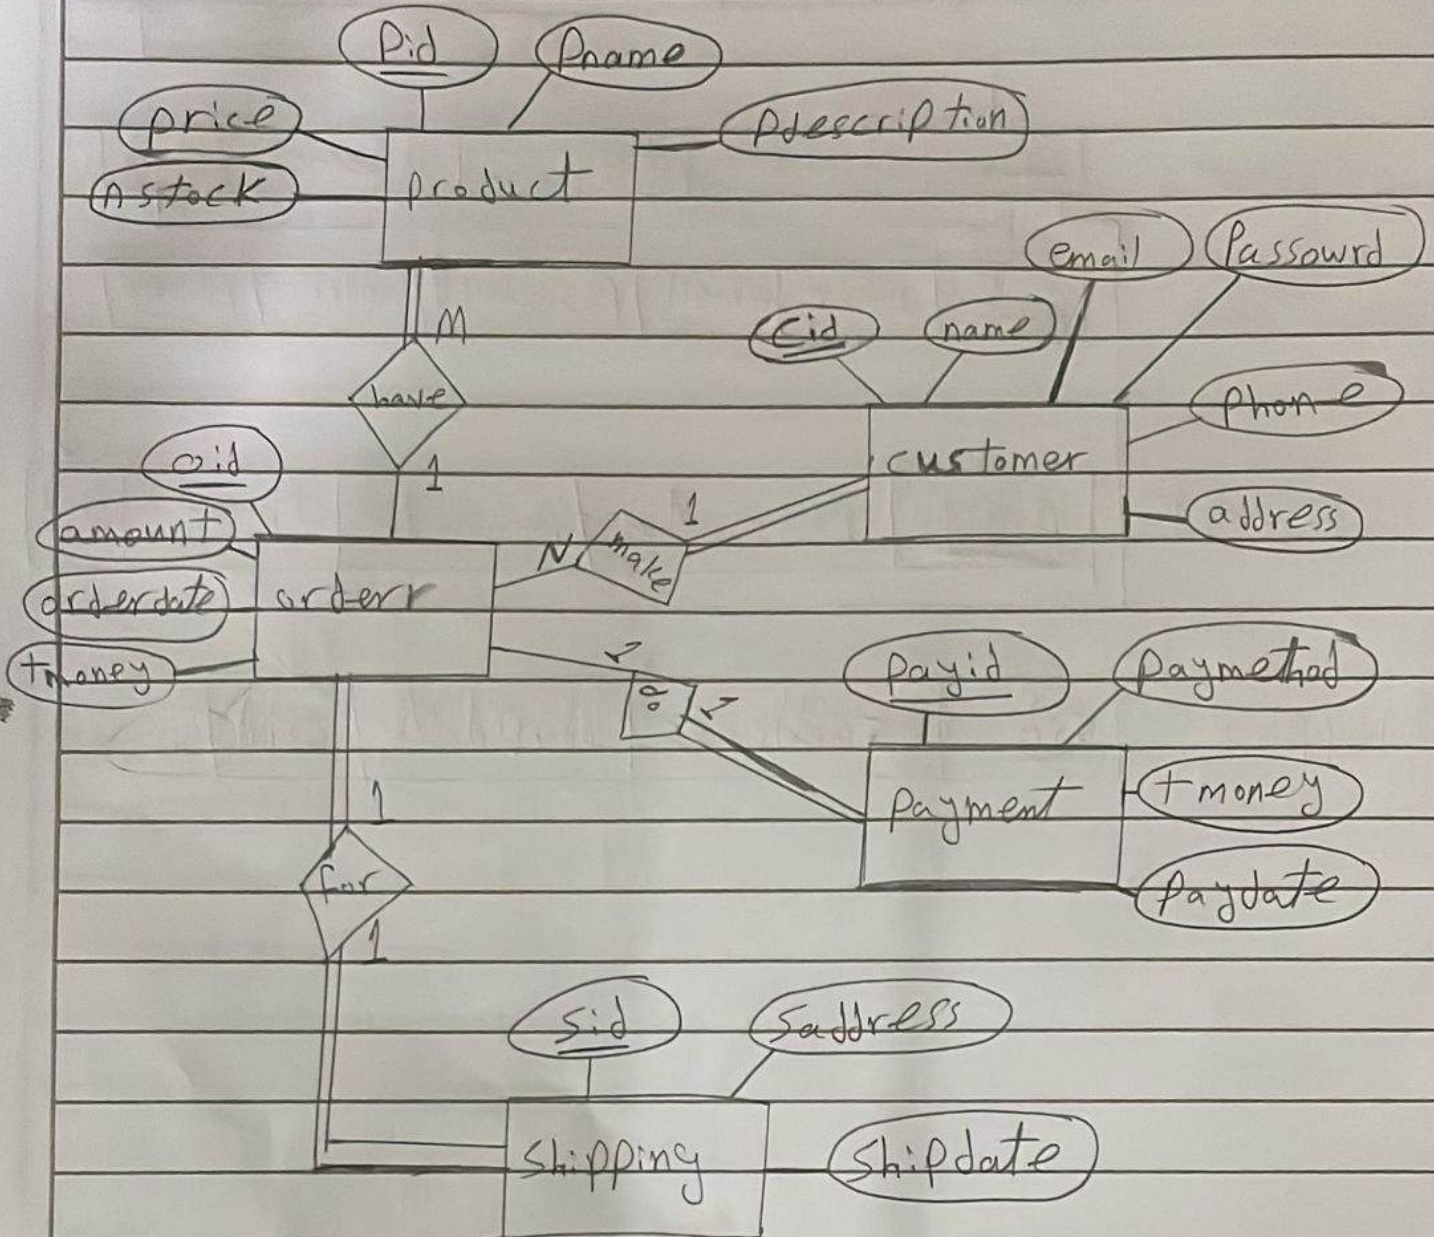 Pid
Pname
price
Pdescription
nstock
product
email
Passowrd
M
Cid
name
have
Phone
oid
1
customer
amount
N
make
1
address
orderdate
orderr
tmoney
1
do
1
Payid
Paymethod
1
Payment
tmoney
for
Paydate
1
Sid
Saddress
Shipping
Shipdate